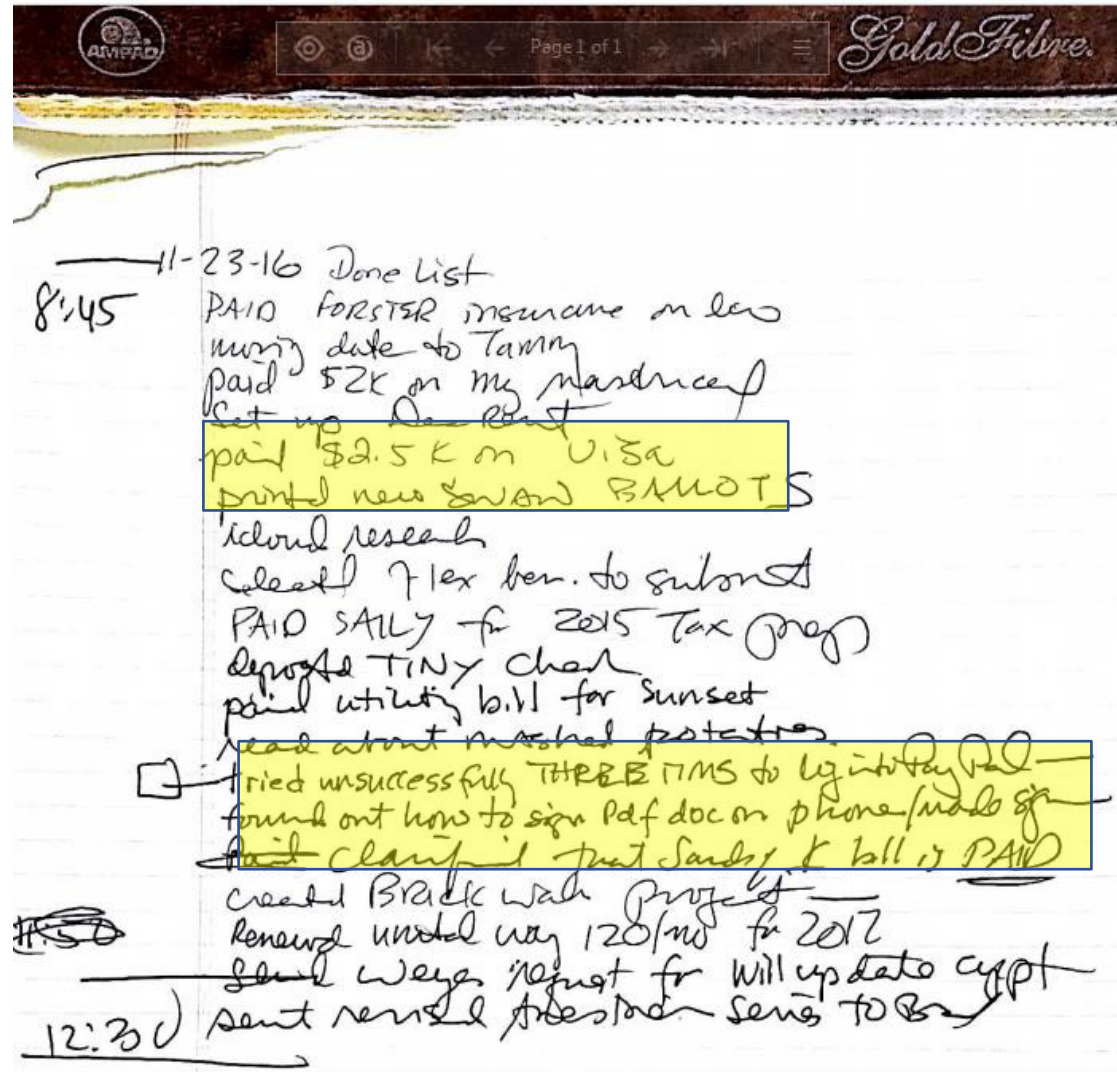 AMPAD
Page 1 of 1
Gold Fibre.
11-23-16 Done List
8:45
PAID FORSTER insurance on
moving date to Tammy
paid $2K on my
Set up Rent
paid $2.5K on Visa
printed new BALLOTS
icloud research
Flex ben. to submit
PAID SALLY for 2015 Tax prep
TINY check
paid utility bill for Sunset
read about mashed potatoes
tried unsuccessfully THREE TIMS to log into PayPal
found out how to sign Pdf doc on phone/made sign
Clarified that Sandy K bill is PAID
created BRICK project
Renewed united way 120/mo for 2017
request for will update
sent revised series to
12:30